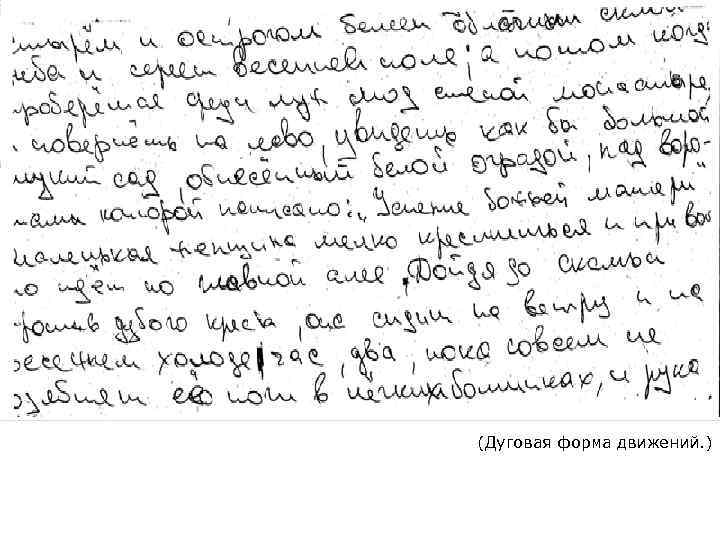 стырём и острогом белеет облачный склон
неба и сереет весеннее поле; а потом когда
проберёшься среди луж под стеной монастыря
и повернёшь на лево, увидешь как бы большой
сад, обнесённый белой оградой, над воро-
тами которой написано: „Успение божьей матери"
маленькая женщина мелко креститься и привы
но идёт по главной алее. Дойдя до скамьи
против дубого креста, она сидит на ветру и на
весеннем холоде, час, два, пока совсем не
зазябнят её ноги в лёгких ботинках, и рука
(Дуговая форма движений.)